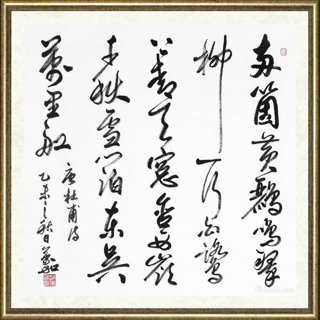 两箇黄鹂鸣翠
柳一行白鹭
上青天窗含西岭
千秋雪门泊东吴
万里船
唐杜甫诗
乙未之秋日